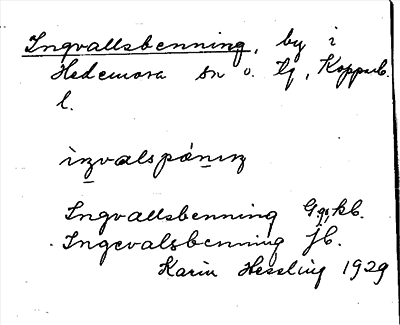 Ingvallsbenning, by i
Hedemora sn o. tg, Kopparb.
l.
Ingvallsbenning Ggs.kb.
Ingevalsbenning Jb.
Karin Hessling 1929